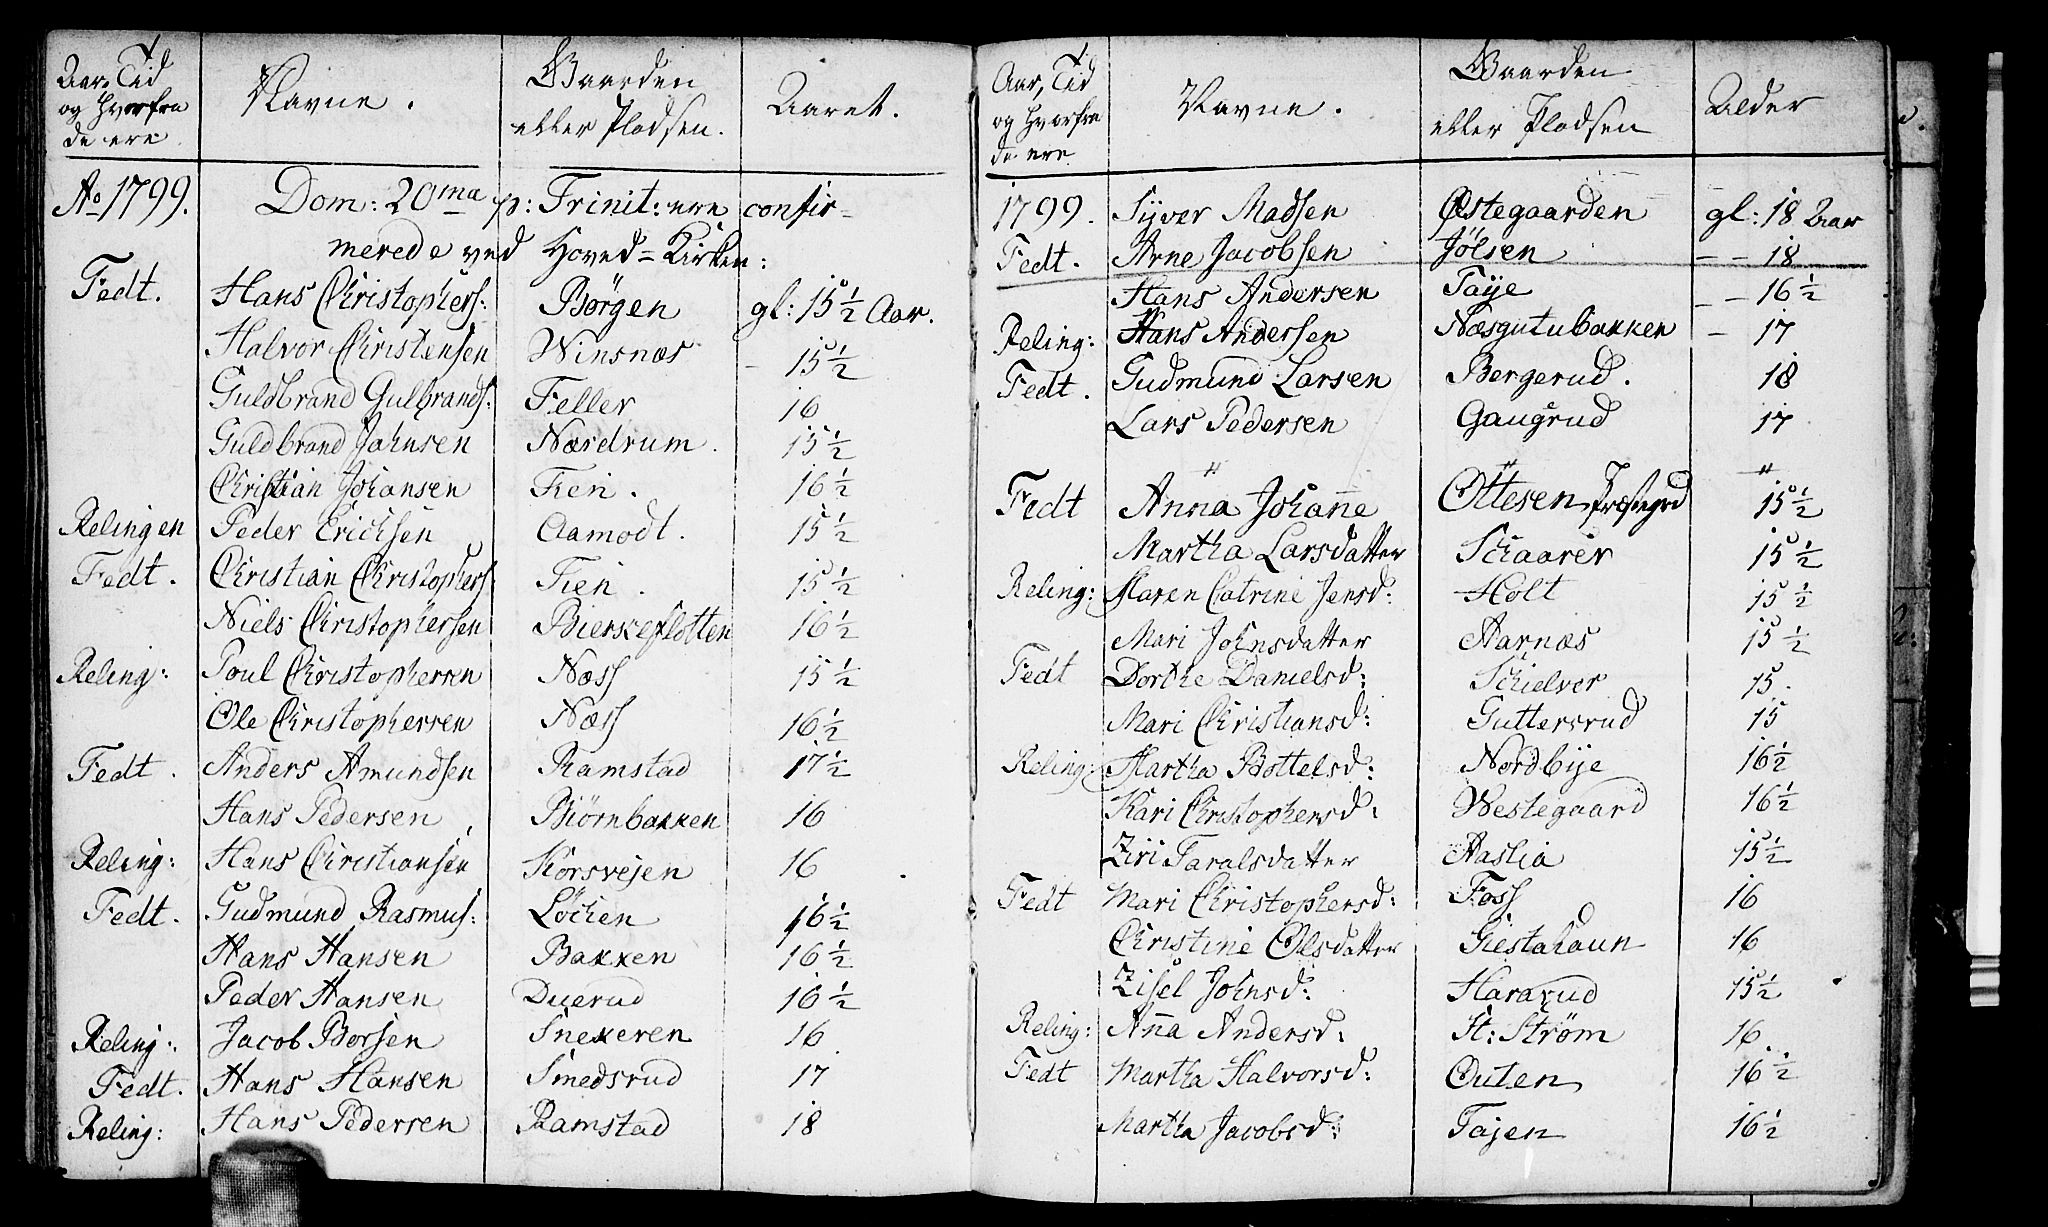 Aar, Tid og hvorfra de ere | Navne. | Gaarden eller Pladsen. | Aaret.
Ao 1799. Dom: 20ma p: Trinit: ere confir-
merede ved Hoved-Kirken:
Fedt. Hans Christophers: Börgen gl: 15 1/2 Aar.
Halvor Christensen Winsnæs - 15 1/2
Guldbrand Gulbrands: Feller 16
Guldbrand Johnsen Nærdrum. 15 1/2
Christian Johansen Fieri. 16 1/2
Relingen Peder Erichsen Aamodt. 15 1/2
Fedt. Christian Christophers Fieri. 15 1/2
Niels Christophersen Bierkeflotten 16 1/2
Reling: Poul Christophersen Næss 15 1/2
Ole Christophersen Næss 16 1/2
Fedt. Anders Amundsen Ramstad 17 1/2
Hans Pedersen Biörnbakken 16
Reling: Hans Christiansen Korsvejen 16
Fedt. Gudmund Rasmus: Löchen 16 1/2
Hans Hansen Bakken 16 1/2
Peder Hansen Duerud 16 1/2
Reling: Jacob Borsen Snekeren 16
Fedt. Hans Hansen Smedsrud 17
Reling: Hans Pedersen Ramstad 18
Aar, Tid og hvorfra de ere | Navne. | Gaarden eller Pladsen | Alder
1799. Syver Madsen Østegaarden gl: 18 Aar
Fedt. Arne Jacobsen Jölsen - - 18
Hans Andersen Taije - - 16 1/2
Reling: Hans Andersen Næsgutubakken - 17
Fedt. Gudmund Larsen Bergerud. 18
Lars Pedersen Gaugrud 17
" " "
Fedt Anna Johanne Ottesen Præstegrd 15 1/2
Martha Larsdatter Schaarer 15 1/2
Reling: Maren Catrine Jensd: Holt 15 1/2
Mari Johnsdatter Aarnæs 15 1/2
Fedt Dorthe Danielsd: Schielver 15.
Mari Christiansd: Guttersrud 15
Reling: Martha Bottelsd: Nordbije 16 1/2
Kari Christophersd: Westegaard 16 1/2
Ziri Taralsdatter Haslia 15 1/2
Fedt Mari Christophersd: Foss 16
Christine Olsdatter Giestahaun 16
Zisel Johnsd: Hararud 15 1/2
Reling: Anna Andersd: St: Ström 16.
Fedt Martha Halvorsd: Outen 16 1/2
Martha Jacobsd: Tajen 16 1/2